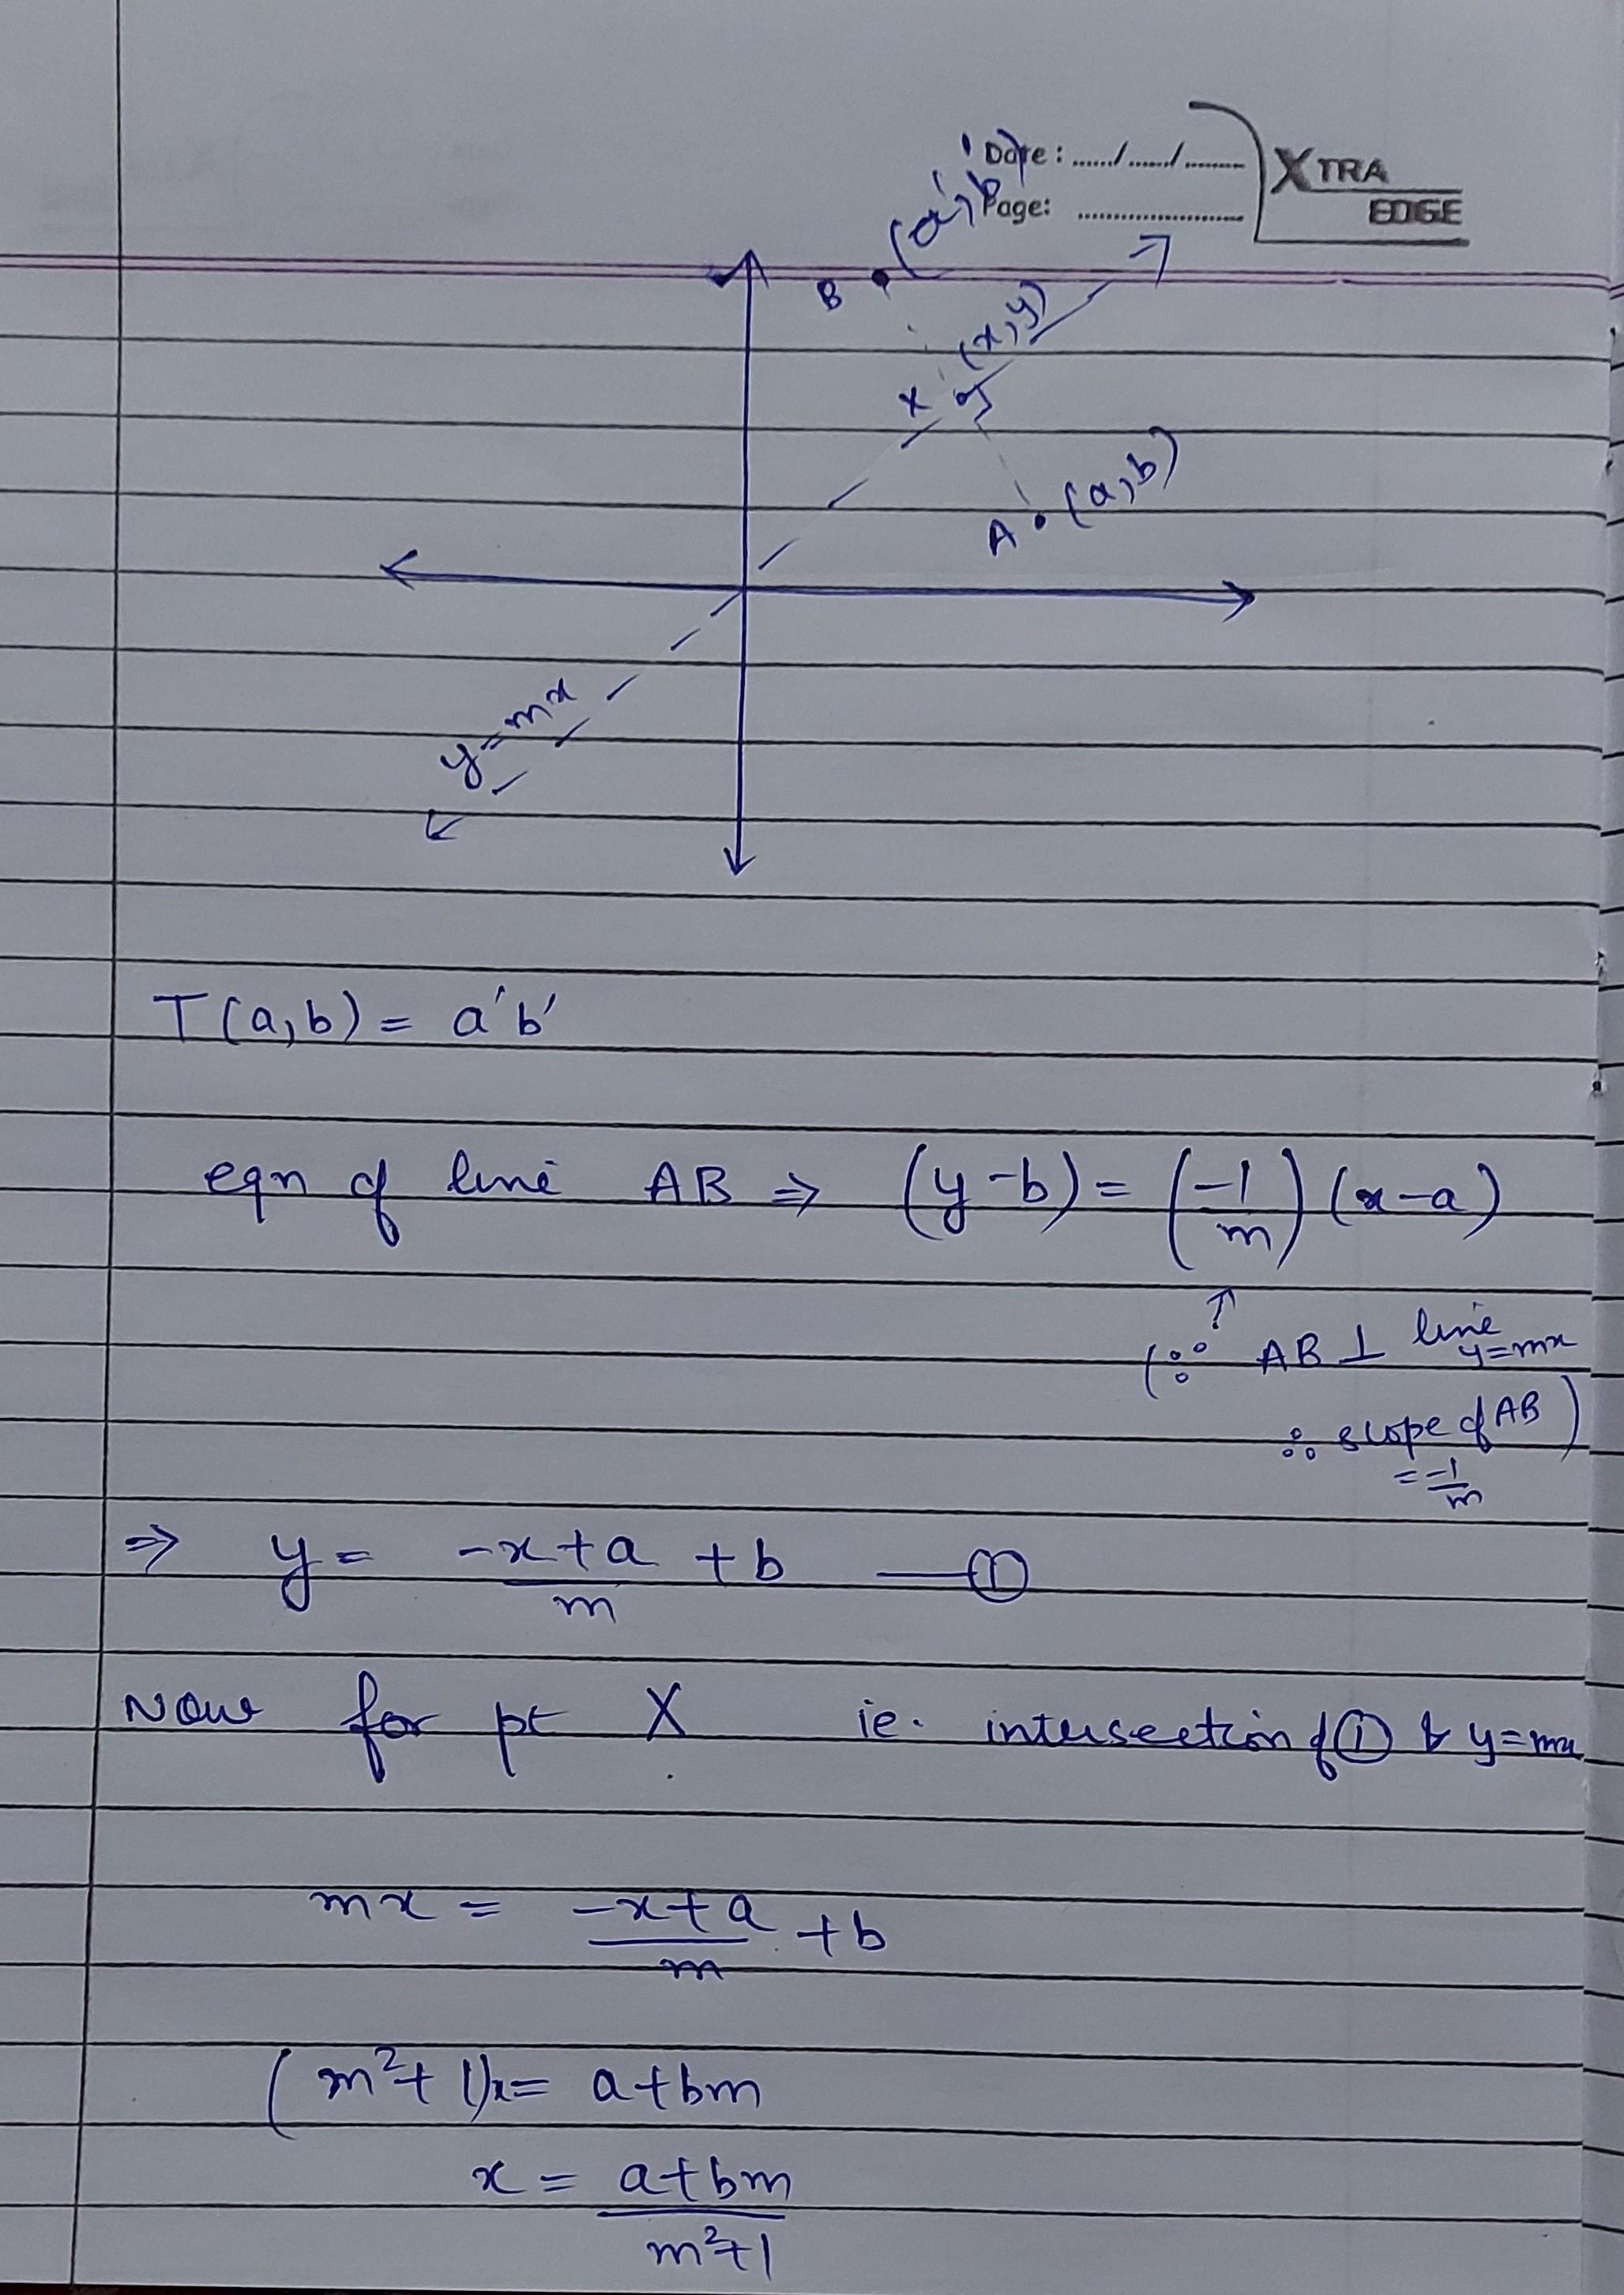 Date: ....../....../........
XTRA
EDGE
Page: ........................
(a', b')
B
(x, y)
X
A (a, b)
y = mx
T(a, b) = a'b'
eqn of line AB ⇒ (y - b) = (-1/m) (x - a)
↑
(∵ AB ⊥ line y = mx
∴ slope of AB = -1/m)
⇒ y = (-x + a)/m + b — ①
Now for pt X ie. intersection of ① & y = mx
mx = (-x + a)/m + b
(m² + 1)x = a + bm
x = (a + bm)/(m² + 1)